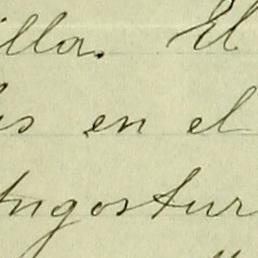 illa. El
is en el
ngostur